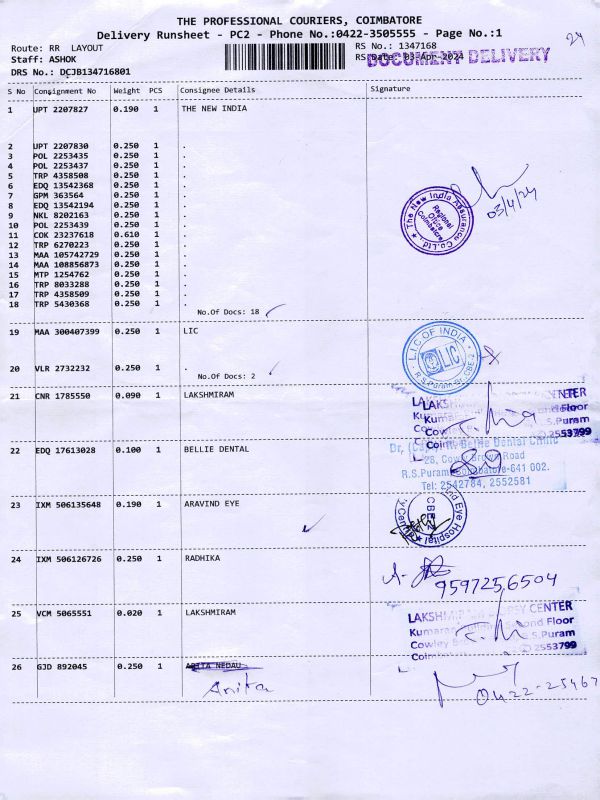 THE PROFESSIONAL COURIERS, COIMBATORE
Delivery Runsheet - PC2 - Phone No.:0422-3505555 - Page No.:1
24
Route: RR LAYOUT
RS No.: 1347168
Staff: ASHOK
RS Date: 03-Apr-2024
DOCUMENT DELIVERY
DRS No.: DCJB134716801
S No Consignment No Weight PCS Consignee Details Signature
1 UPT 2207827 0.190 1 THE NEW INDIA
2 UPT 2207830 0.250 1 .
3 POL 2253435 0.250 1 .
4 POL 2253437 0.250 1 .
5 TRP 4358508 0.250 1 .
6 EDQ 13542368 0.250 1 .
7 GPM 363564 0.250 1 .
8 EDQ 13542194 0.250 1 .
9 NKL 8202163 0.250 1 .
10 POL 2253439 0.250 1 .
11 COK 23237618 0.610 1 .
12 TRP 6270223 0.250 1 .
13 MAA 105742729 0.250 1 .
14 MAA 108856873 0.250 1 .
15 MTP 1254762 0.250 1 .
16 TRP 8033288 0.250 1 .
17 TRP 4358509 0.250 1 .
18 TRP 5430368 0.250 1 .
No.Of Docs: 18
The New India Assurance Co.Ltd.
Regional
Office
Coimbatore
03/4/24
19 MAA 300407399 0.250 1 LIC
20 VLR 2732232 0.250 1 .
No.Of Docs: 2
L.I.C OF INDIA
LIC
R.S.Puram Br. CBE-2
21 CNR 1785550 0.090 1 LAKSHMIRAM
LAKSH CENTER
Kumar Floor
Cow S.Puram
Coim 2553799
22 EDQ 17613028 0.100 1 BELLIE DENTAL
Bellie Dental Clinic
28, Cowly Brown Road
R.S.Puram, Coimbatore-641 002.
Tel: 2542784, 2552581
23 IXM 506135648 0.190 1 ARAVIND EYE
Eye Hospital
CBE-2
24 IXM 506126726 0.250 1 RADHIKA
9597256504
25 VCM 5065551 0.020 1 LAKSHMIRAM
LAKSHMIR CENTER
Kumaran Second Floor
Cowley S.Puram
Coim 2553799
26 GJD 892045 0.250 1 ANITA NEDAU
Anita
0422-25467